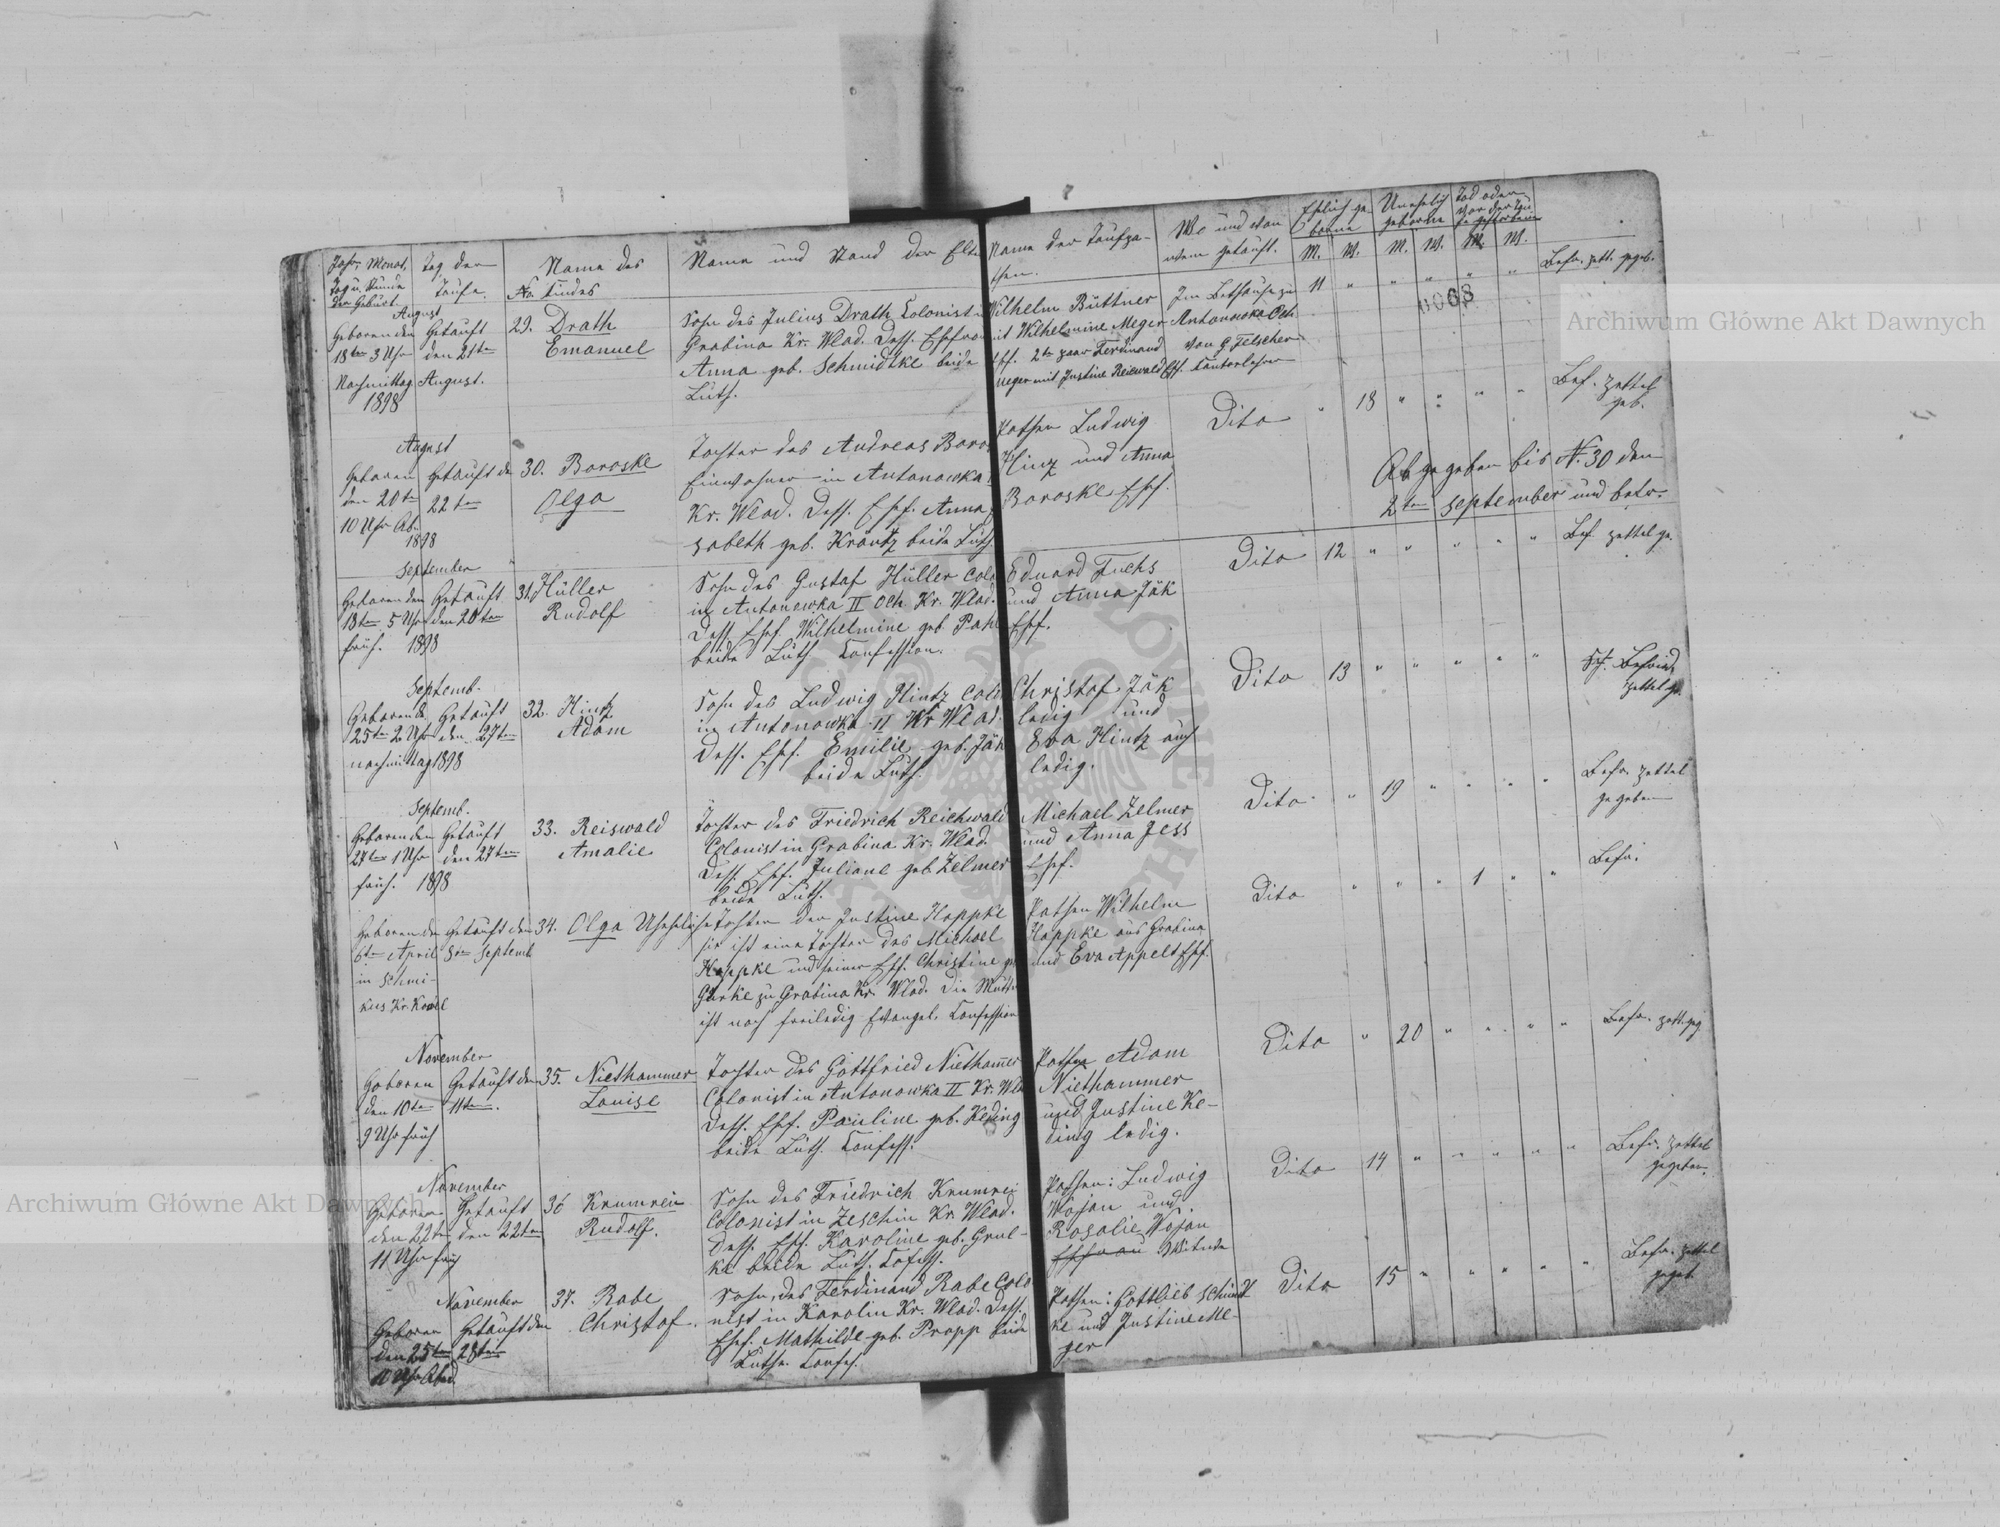 Jahr, Monat,
Tag u. Stunde
der Geburt.
Tag der
Taufe.
Name des
No. Kindes
Name und Stand der Elte
Name der Taufpa-
then.
Wo und von
wem getauft.
Ehelich ge
borne
Unehelich
geborne
Tod oder
vor der Tau
fe gestorben
M. W. M. W. M. W.
August
Geboren den
18ten 3 Uhr
Nachmittag
1898
Getauft
den 21ten
August.
29. Drath
Emanuel
Sohn des Julius Drath Colonist in
Grabina Kr. Wlad. Dess. Ehefrau
Anna geb. Schmidtke beide
Luth.
Wilhelm Büttner
mit Wilhelmine Meger
Ehf. 2te paar Ferdinand
Meger mit Justine Reiswald Ehf.
Im Bethause zu
Antonowka Och
von G. Felscher
Kantorlehrer
11 " " " " "
Besch. zett. gegeb.
0068
August
Geboren
den 20ten
10 Uhr Ab.
1898
Getauft den
22ten
30. Boroske
Olga
Tochter des Andreas Boros
Einwohner in Antonowka
Kr. Wlad. Dess. Ehf. Anna
sabeth geb. Krantz beide Luth.
Pathen Ludwig
Hinz und Anna
Boroske Ehf.
Dito
" 18 " " " "
Bes. zettel
geb.
Abgegeben bis N. 30 den
2ten September und betr.
September
Geboren den
18ten 5 Uhr
früh. 1898
Getauft
den 20ten
31. Hüller
Rudolf
Sohn des Gustaf Hüller Colo
in Antonowka II Och Kr. Wlad.
Dess. Ehef. Wilhelmine geb. Pahl
beide Luth. Confession.
Eduard Fuchs
und Anna Jäk
Ehf.
Dito
12 " " " " "
Bes. zettel ge.
Septemb.
Geboren d.
25ten 2 Uhr
nachmittag 1898
Getauft
den 27ten
32. Hintz
Adam
Sohn des Ludwig Hintz Colo
in Antonowka II Kr. Wlad.
Dess. Ehf. Emilie geb. Jäk
beide Luth.
Christof Jäk
ledig und
Eva Hintz auch
ledig.
Dito
13 " " " " "
zettel ge.
Septemb.
Geboren den
27ten 1 Uhr
früh. 1898
Getauft
den 27ten
33. Reiswald
Amalie
Tochter des Friedrich Reichwald
Colonist in Grabina Kr. Wlad.
Dess. Ehf. Juliane geb. Zelmer
beide Luth.
Michael Zelmer
und Anna Jess
Ehf.
Dito
" 19 " " " "
Besch. zettel
gegeben
Geboren den
6ten April
in Schmi-
kus Kr. Kowel
Getauft den
5ten Septemb
34. Olga Uneheliche
Tochter der Justine Hoppke
sie ist eine Tochter des Michael
Hoppke und seiner Ehf. Christine ge
Gürke zu Grabina Kr. Wlad. Die Mutter
ist noch freiledig Evangel. Confession
Pathen Wilhelm
Hoppke aus Grabina
und Eva Appelt Ehf.
Dito
" " " 1 " "
Besch.
November
Geboren
den 10ten
9 Uhr früh
Getauft den
11ten.
35. Niethammer
Louise
Tochter des Gottfried Niethammer
Colonist in Antonowka II Kr. Wla
Dess. Ehf. Pauline geb. Keding
beide Luth. Confess.
Pathen Adam
Niethammer
und Justine Ke-
ding ledig.
Dito
" 20 " " " "
Besch. zett. geg.
November
Geboren
den 22ten
11 Uhr früh
Getauft
den 22ten
36 Krumrein
Rudolf.
Sohn des Friedrich Krumrei
Colonist in Zeschin Kr. Wlad.
Dess. Ehf. Karoline geb. Grul-
ke beide Luth. Cofess.
Pathen: Ludwig
Wojan und
Rosalie Wojan
Ehefrau Witwe
Dito
14 " " " " "
Besch. zettel
gegeben.
November
Geboren
den 25ten
11 Uhr Abed.
Getauft den
28ten
37. Rabe
Christof.
Sohn des Ferdinand Rabe Colo
nist in Karolin Kr. Wlad. Dess.
Ehef. Mathilde geb. Propp beide
Luthr. Confes.
Pathen: Gottlieb Schmidt
ke und Justine Me-
ger
Dito
15 " " " " "
Besch. zettel
gegeb.
Archiwum Główne Akt Dawnych
Archiwum Główne Akt Dawnych